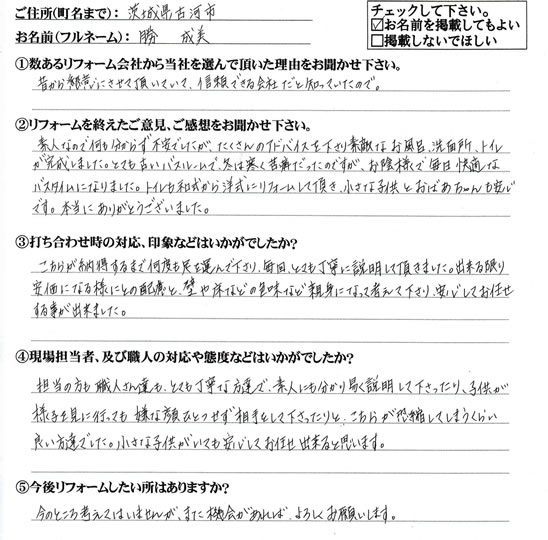 ご住所(町名まで): 茨城県古河市
お名前(フルネーム): 勝 成美
チェックして下さい。
☑お名前を掲載してもよい
□掲載しないでほしい
①数あるリフォーム会社から当社を選んで頂いた理由をお聞かせ下さい。
昔から懇意にさせて頂いていて、信頼できる会社だと知っていたので。
②リフォームを終えたご意見、ご感想をお聞かせ下さい。
素人なので何も分からず不安でしたが、たくさんのアドバイスを下さり素敵なお風呂、洗面所、トイレ
が完成しました。とても古いバスルームで、冬は寒く苦痛だったのですが、お陰様で毎日快適な
バスタイムになりました。トイレも和式から洋式にリフォームして頂き、小さな子供とおばあちゃんも安心
です。本当にありがとうございました。
③打ち合わせ時の対応、印象などはいかがでしたか?
こちらが納得するまで何度も足を運んで下さり、毎回、とても丁寧に説明して頂きました。出来る限り
安価になる様にとの配慮と、壁や床などの色味など親身になって考えて下さり、安心してお任せ
する事が出来ました。
④現場担当者、及び職人の対応や態度などはいかがでしたか?
担当の方も職人さん達も、とても丁寧な方達で、素人にも分かり易く説明して下さったり、子供が
様子を見に行っても嫌な顔ひとつせず相手をして下さったりと、こちらが恐縮してしまうくらい
良い方達でした。小さな子供がいても安心してお任せ出来ると思います。
⑤今後リフォームしたい所はありますか?
今のところ考えてはいませんが、また機会があれば、よろしくお願いします。